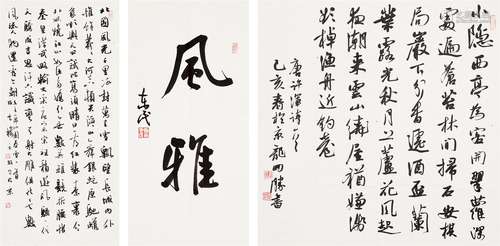 小隱西亭為客開翠蘿深
處遍蒼苔林間掃石安棋
局巖下分香遞酒盃蘭
葉露光秋月上蘆花風起
潮來雲山倚屋猶嫌淺
欲棹漁舟近釣臺
唐許渾詩一首
己亥春於京
風雅
北國風光千里冰封萬里雪飄望長城內外
惟餘莽莽大河上下頓失滔滔山舞銀蛇原馳蠟
象欲與天公試比高須晴日看紅裝素裹分外妖
嬈江山如此多嬌引無數英雄競折腰惜
秦皇漢武略輸文采唐宗宋祖稍遜風騷一代
天驕成吉思汗只識彎弓射大雕俱往矣數
風流人物還看今朝